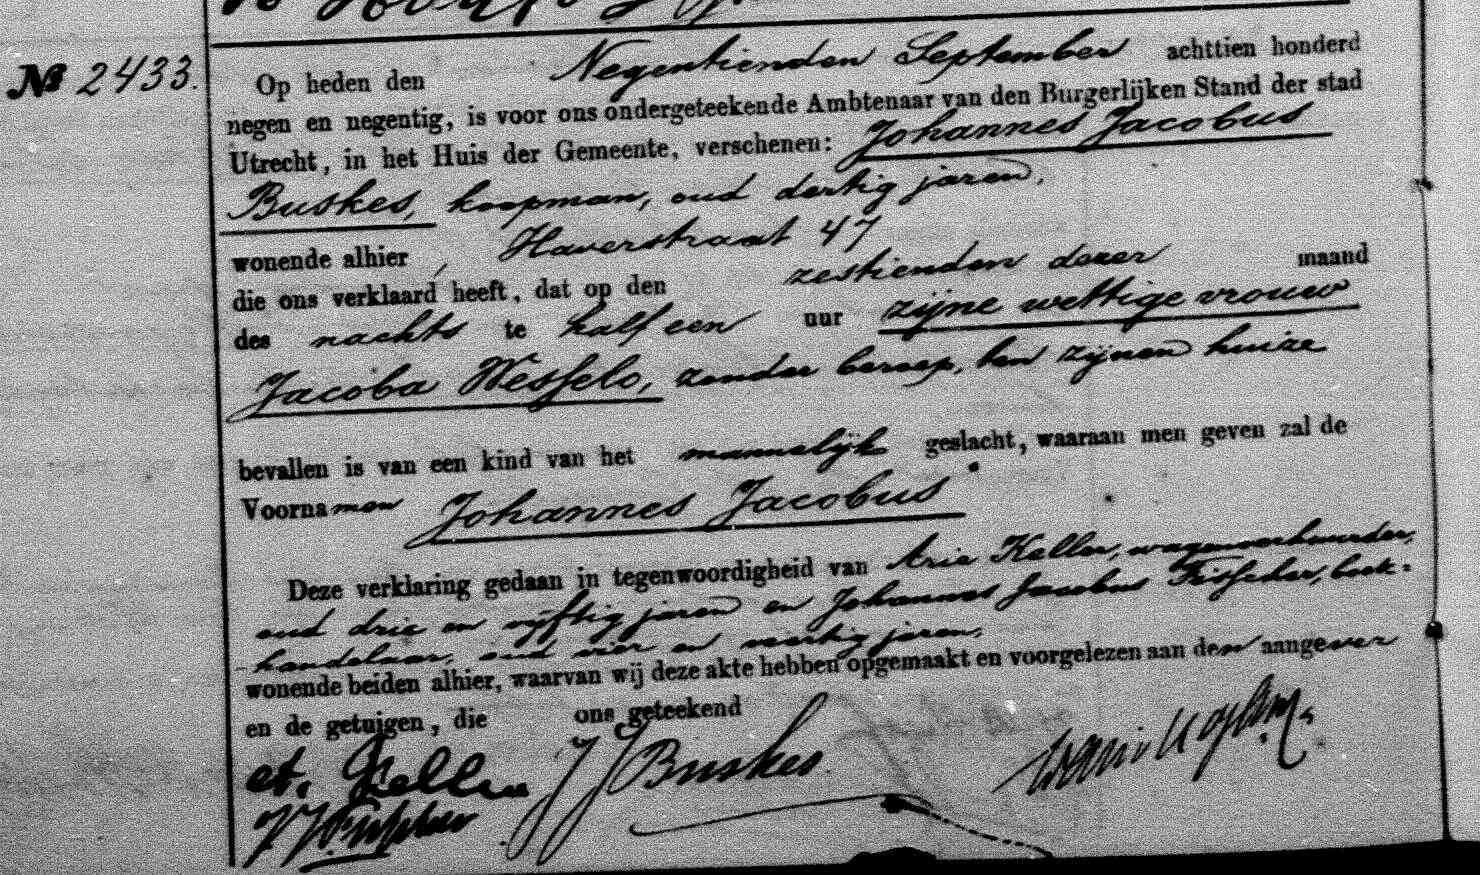 No 2433.
Op heden den Negentienden September achttien honderd
negen en negentig, is voor ons ondergeteekende Ambtenaar van den Burgerlijken Stand der stad
Utrecht, in het Huis der Gemeente, verschenen: Johannes Jacobus
Buskes, koopman, oud dertig jaren,
wonende alhier, Haverstraat 47
die ons verklaard heeft, dat op den zestienden dezer maand
des nachts te half een uur zijne wettige vrouw
Jacoba Wessels, zonder beroep, ten zijnen huize
bevallen is van een kind van het mannelijk geslacht, waaraan men geven zal de
Voornamen Johannes Jacobus
Deze verklaring gedaan in tegenwoordigheid van Arie Keller, wagenverhuurder,
oud drie en vijftig jaren en Johannes Jacobus Fusseder, boek-
handelaar, oud vier en veertig jaren,
wonende beiden alhier, waarvan wij deze akte hebben opgemaakt en voorgelezen aan den aangever
en de getuigen, die ons geteekend
A. Keller JJBuskes